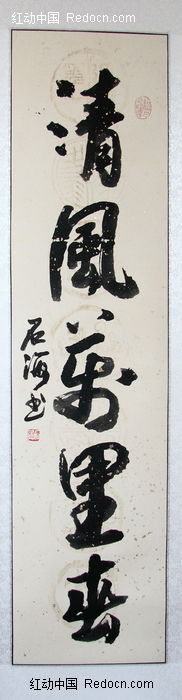 红动中国 Redocn.com
清風萬里春
石海书
红动中国 Redocn.com